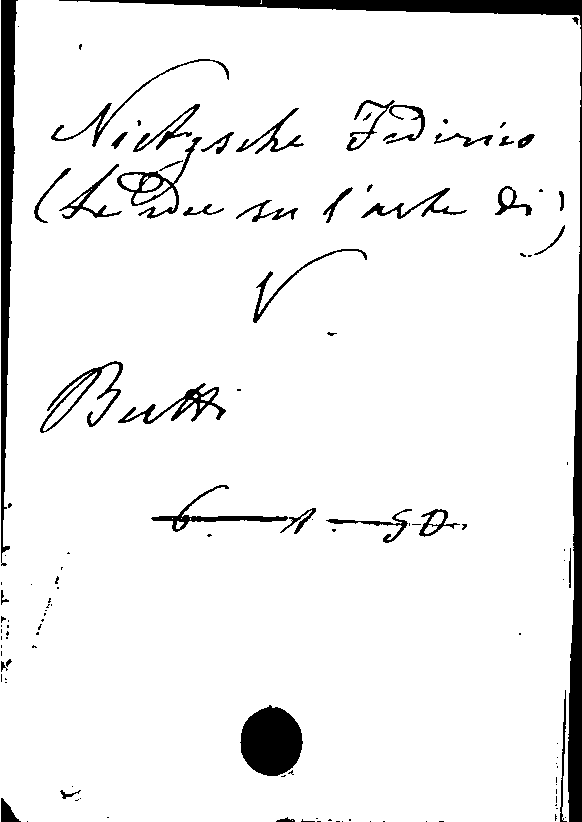 Nietzsche Federico
(Le Idee su l'arte di)
V.
Butti
6 1 50